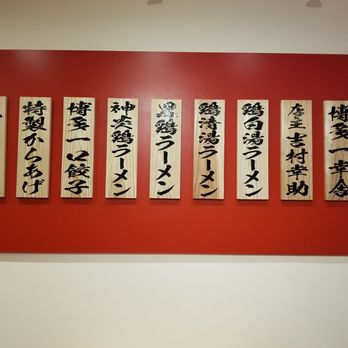 博多一幸舎
店主吉村幸助
鶏白湯ラーメン
鶏清湯ラーメン
黒鶏ラーメン
神炎鶏ラーメン
博多一口餃子
特製からあげ